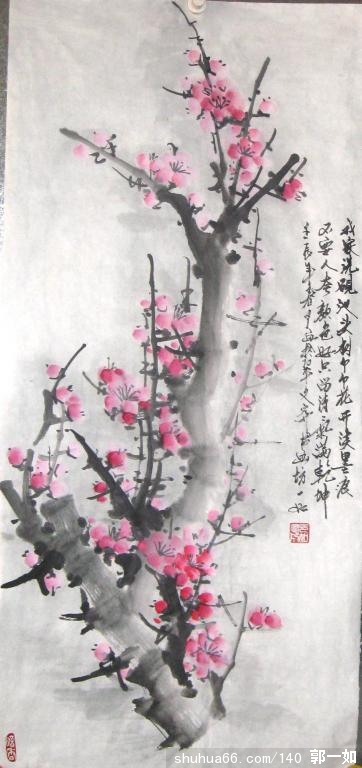 我家洗硯池头树个个花开淡墨痕
不要人夸颜色好只留清氣满乾坤
壬辰年春月
一如
shuhua66.com/140 郭一如